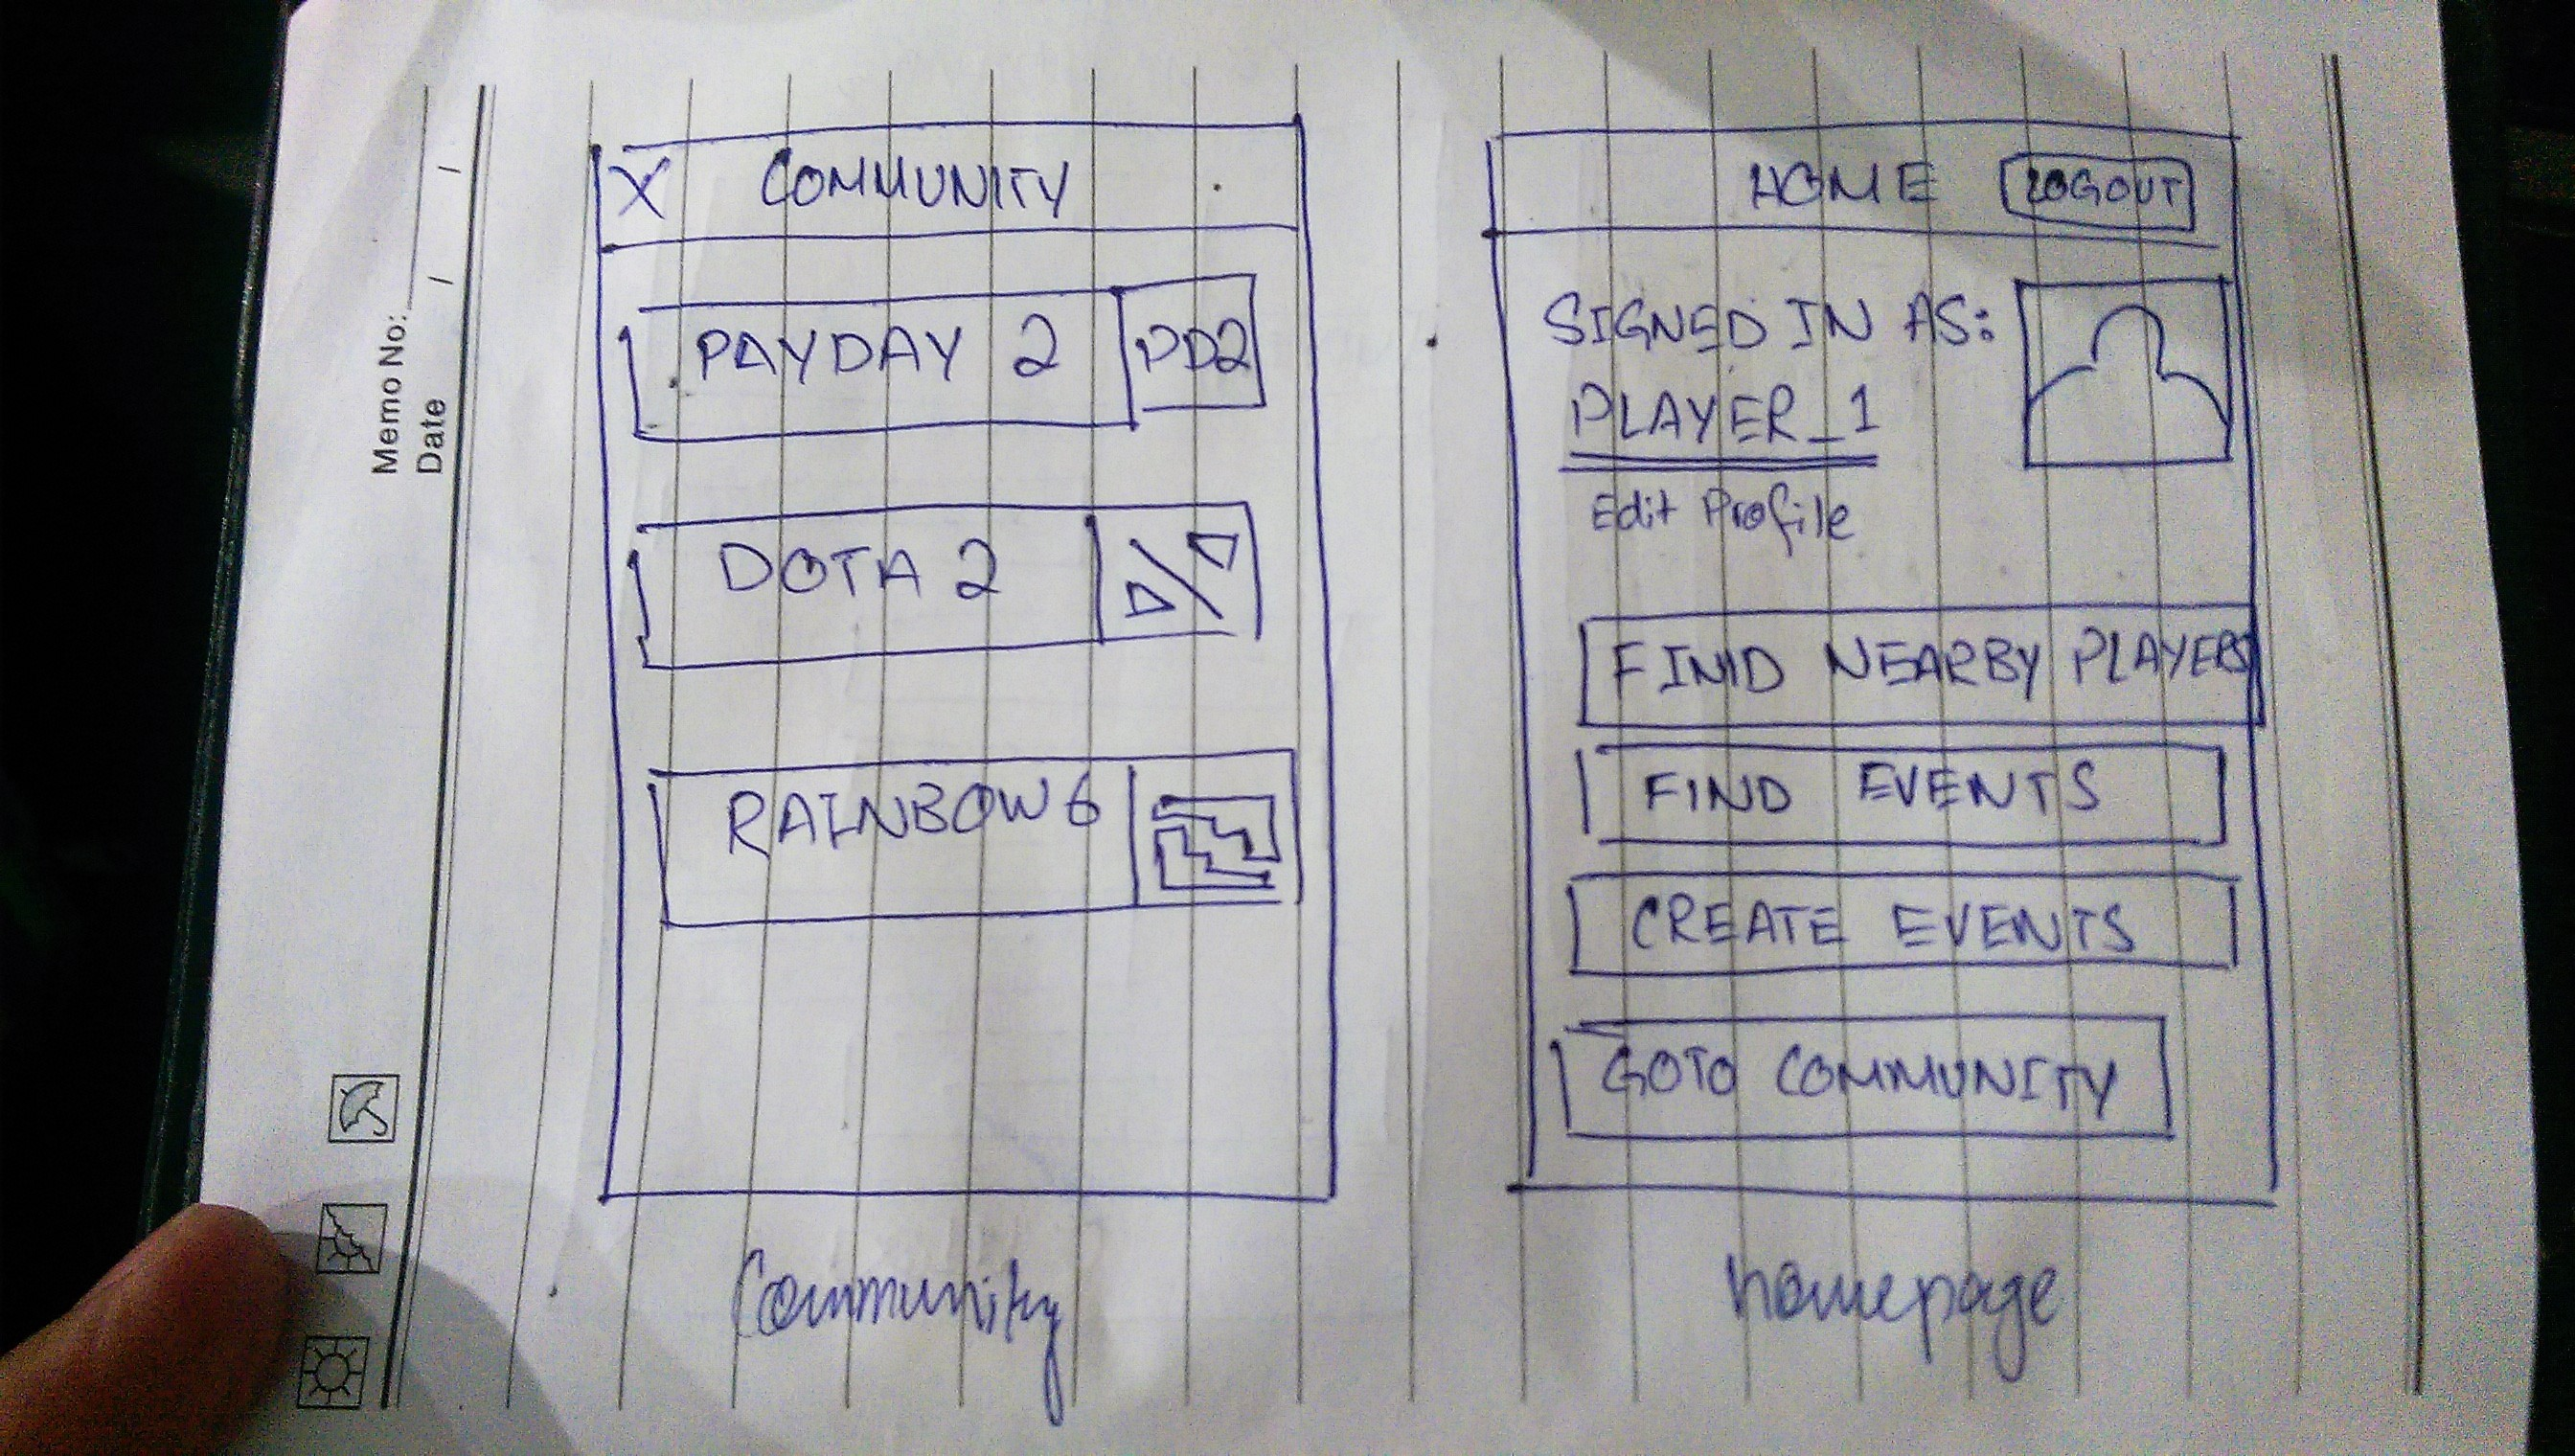 Memo No:
Date / /
X COMMUNITY
PAYDAY 2 PD2
DOTA 2
RAINBOW 6
Community
HOME LOGOUT
SIGNED IN AS:
PLAYER_1
Edit Profile
FIND NEARBY PLAYERS
FIND EVENTS
CREATE EVENTS
GOTO COMMUNITY
homepage